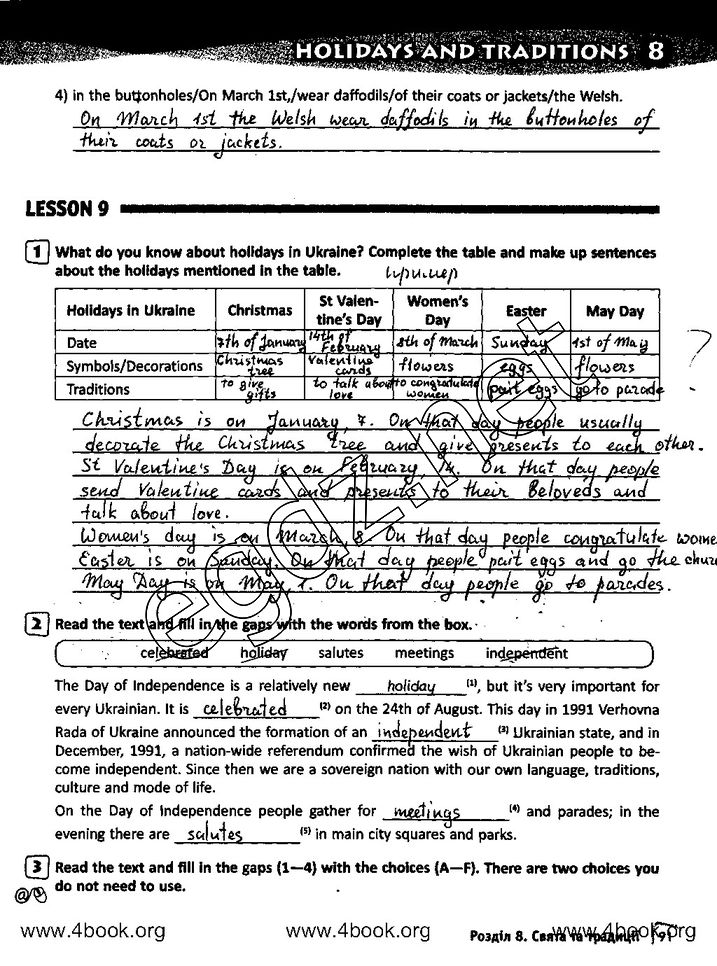 HOLIDAYS AND TRADITIONS 8
4) in the buttonholes/On March 1st,/wear daffodils/of their coats or jackets/the Welsh.
On March 1st the Welsh wear daffodils in the buttonholes of
their coats or jackets.
LESSON 9
1 What do you know about holidays in Ukraine? Complete the table and make up sentences
about the holidays mentioned in the table.
Holidays in Ukraine Christmas St Valen-
tine's Day Women's
Day Easter May Day
Date 7th of January 14th of
February 8th of March Sunday 1st of May ?
Symbols/Decorations Christmas
tree Valentine
cards flowers eggs flowers
Traditions to give
gifts to talk about
love to congratulate
women pait eggs go to parade
Christmas is on January, 7. On that day people usually
decorate the Christmas tree and give presents to each other.
St Valentine's Day is on February 14. On that day people
send Valentine cards and presents to their Beloveds and
talk about love.
Women's day is on March, 8. On that day people congratulate wome
Easter is on Sunday. On that day people pait eggs and go the chur
May Day is on May, 1. On that day people go to parades.
egdz.net
2 Read the text and fill in the gaps with the words from the box.
celebrated holiday salutes meetings independent
The Day of Independence is a relatively new holiday (1), but it's very important for
every Ukrainian. It is celebrated (2) on the 24th of August. This day in 1991 Verhovna
Rada of Ukraine announced the formation of an independent (3) Ukrainian state, and in
December, 1991, a nation-wide referendum confirmed the wish of Ukrainian people to be-
come independent. Since then we are a sovereign nation with our own language, traditions,
culture and mode of life.
On the Day of Independence people gather for meetings (4) and parades; in the
evening there are salutes (5) in main city squares and parks.
3 Read the text and fill in the gaps (1—4) with the choices (A—F). There are two choices you
do not need to use.
www.4book.org www.4book.org www.4book.org
Розділ 8. Свята та традиції 91